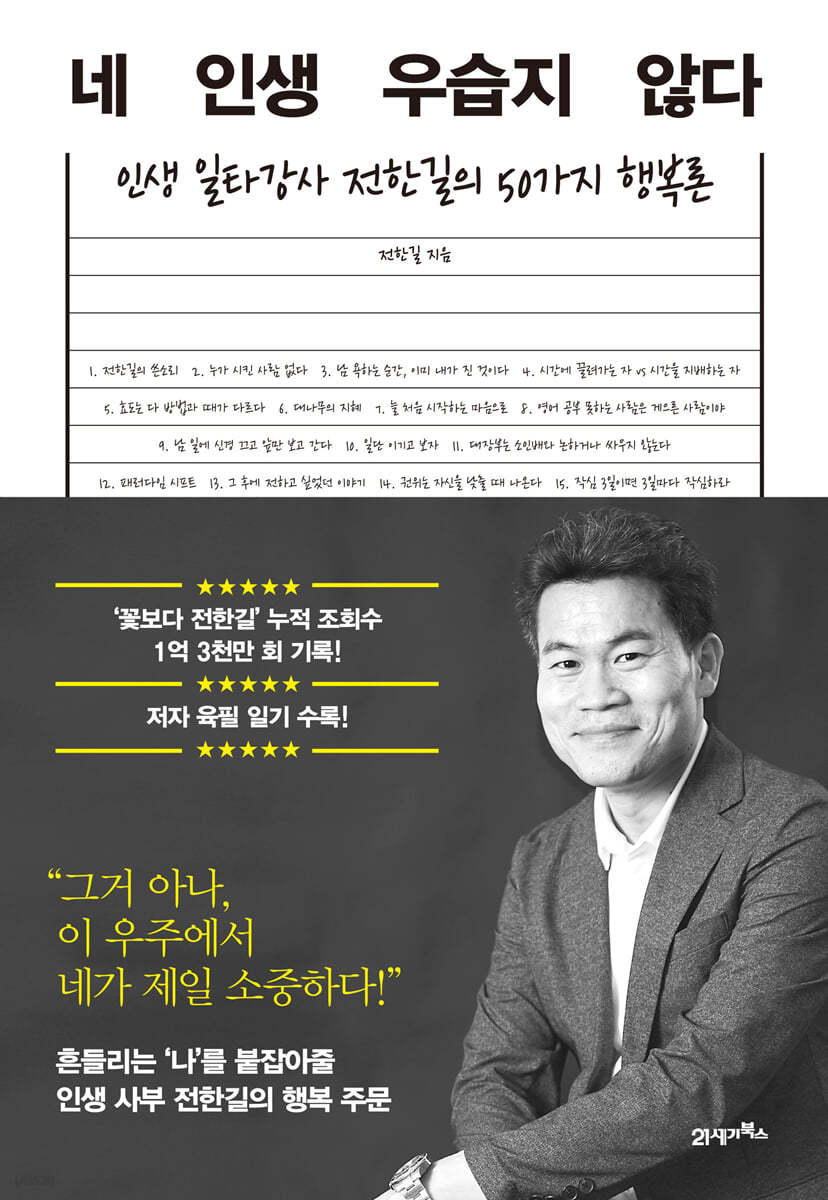 네 인생 우습지 않다
인생 일타강사 전한길의 50가지 행복론
전한길 지음
1. 전한길의 쓴소리 2. 누가 시킨 사람 없다 3. 남 욕하는 순간, 이미 내가 진 것이다 4. 시간에 끌려가는 자 vs 시간을 지배하는 자
5. 효도는 다 방법과 때가 다르다 6. 대나무의 지혜 7. 늘 처음 시작하는 마음으로 8. 영어 공부 못하는 사람은 게으른 사람이야
9. 남 일에 신경 끄고 앞만 보고 간다 10. 일단 이기고 보자 11. 대장부는 소인배와 논하거나 싸우지 않는다
12. 패러다임 시프트 13. 그 후에 전하고 싶었던 이야기 14. 권위는 자신을 낮출 때 나온다 15. 작심 3일이면 3일마다 작심하라
‘꽃보다 전한길’ 누적 조회수
1억 3천만 회 기록!
저자 육필 일기 수록!
“그거 아나,
이 우주에서
네가 제일 소중하다!”
흔들리는 ‘나’를 붙잡아줄
인생 사부 전한길의 행복 주문
21세기북스